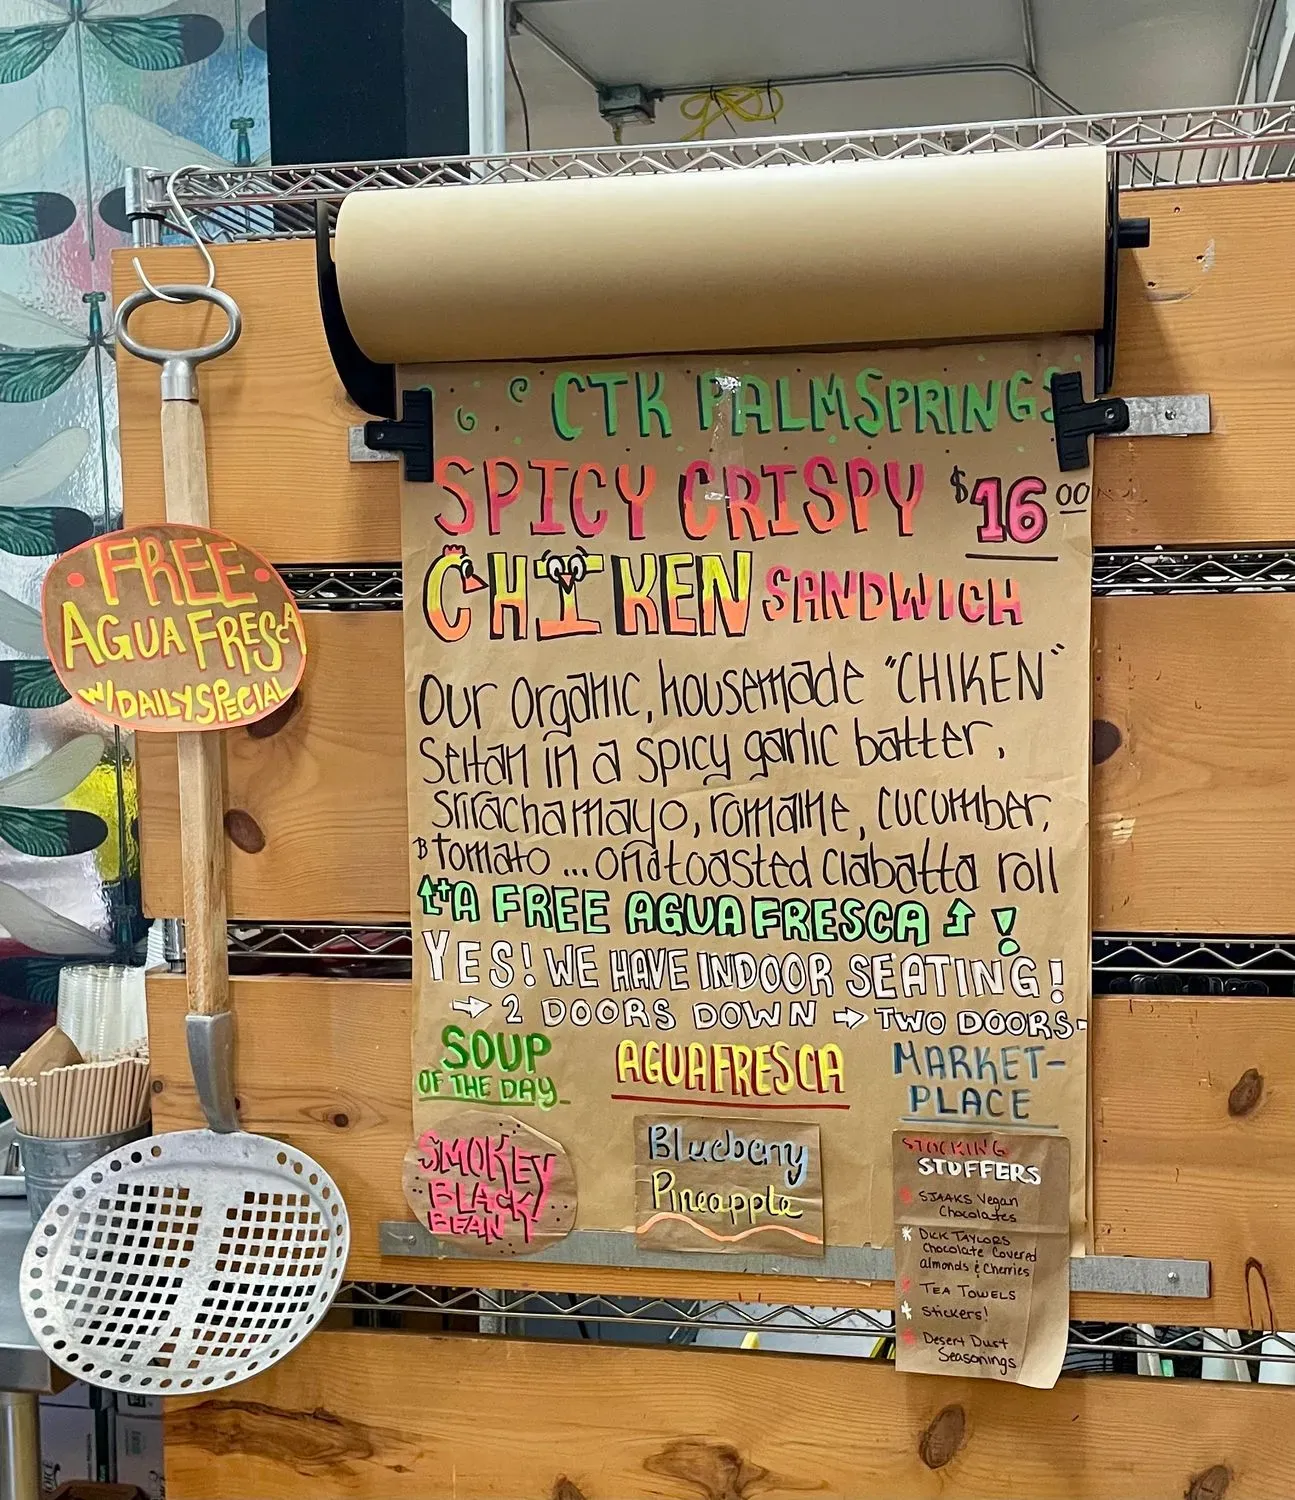 CTK PALM SPRINGS
SPICY CRISPY $16 00
CHIKEN SANDWICH
Our organic, housemade "CHIKEN"
Seitan in a spicy garlic batter,
Sriracha mayo, romaine, cucumber,
tomato ... on a toasted ciabatta roll
+ A FREE AGUA FRESCA !
YES! WE HAVE INDOOR SEATING!
→ 2 DOORS DOWN → TWO DOORS-
SOUP
OF THE DAY
SMOKEY
BLACK
BEAN
AGUA FRESCA
Blueberry
Pineapple
MARKET-
PLACE
STOCKING
STUFFERS
SJAAKS Vegan
Chocolates
DICK TAYLORS
Chocolate Covered
almonds & Cherries
TEA TOWELS
Stickers!
Desert Dust
Seasonings
FREE
AGUA FRESCA
W/DAILY SPECIAL